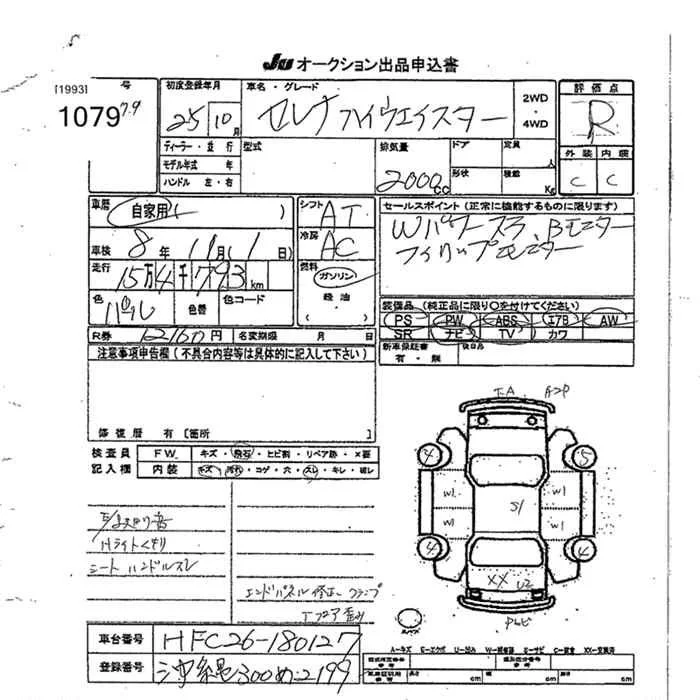 JU オークション出品申込書
[1993]
号
1079
7.9
初度登録年月
25 10月
車名・グレード
セレナ ハイウェイスター
2WD
・
4WD
評価点
R
外装 内装
C C
ディーラー・並行
モデル年式 年
ハンドル 左・右
型式
排気量
2000cc
ドア
形状
定員
人
積載
Kg
車歴
自家用( )
車検 8年 11月( 1日)
走行 15万4千793km
色
パール
色番
色コード
シフト
AT
冷房
AC
燃料
ガソリン
軽油
( )
セールスポイント(正常に機能するものに限ります)
Wパワースラ、Bモニター
フィリップモニター
装備品(純正品に限り○を付けてください)
PS PW ABS エアB AW
SR ナビ TV カワ
新車保証書
有・無
後日品
R券 12160円 名変期限 月 日
注意事項申告欄(不具合内容等は具体的に記入して下さい)
修復歴 有[箇所 ]
検査員
記入欄
FW. キズ・飛石・ヒビ割・リペア跡・×要
内装 キズ・汚れ・コゲ・穴・スレ・キレ・破レ
Hライトくもり
シート ハンドルスレ
エンドパネル修正 クランプ
T.A
A2P
4
5
4
4
W1
W1
W1
W1
S1
XX U2
スペア
車台番号 HFC26-180127
登録番号 沖縄300め2199
A-キズ E-エクボ U-凹み W-補修跡 S-サビ C-腐食 XX-交換済
長さ cm 幅 cm 高さ cm